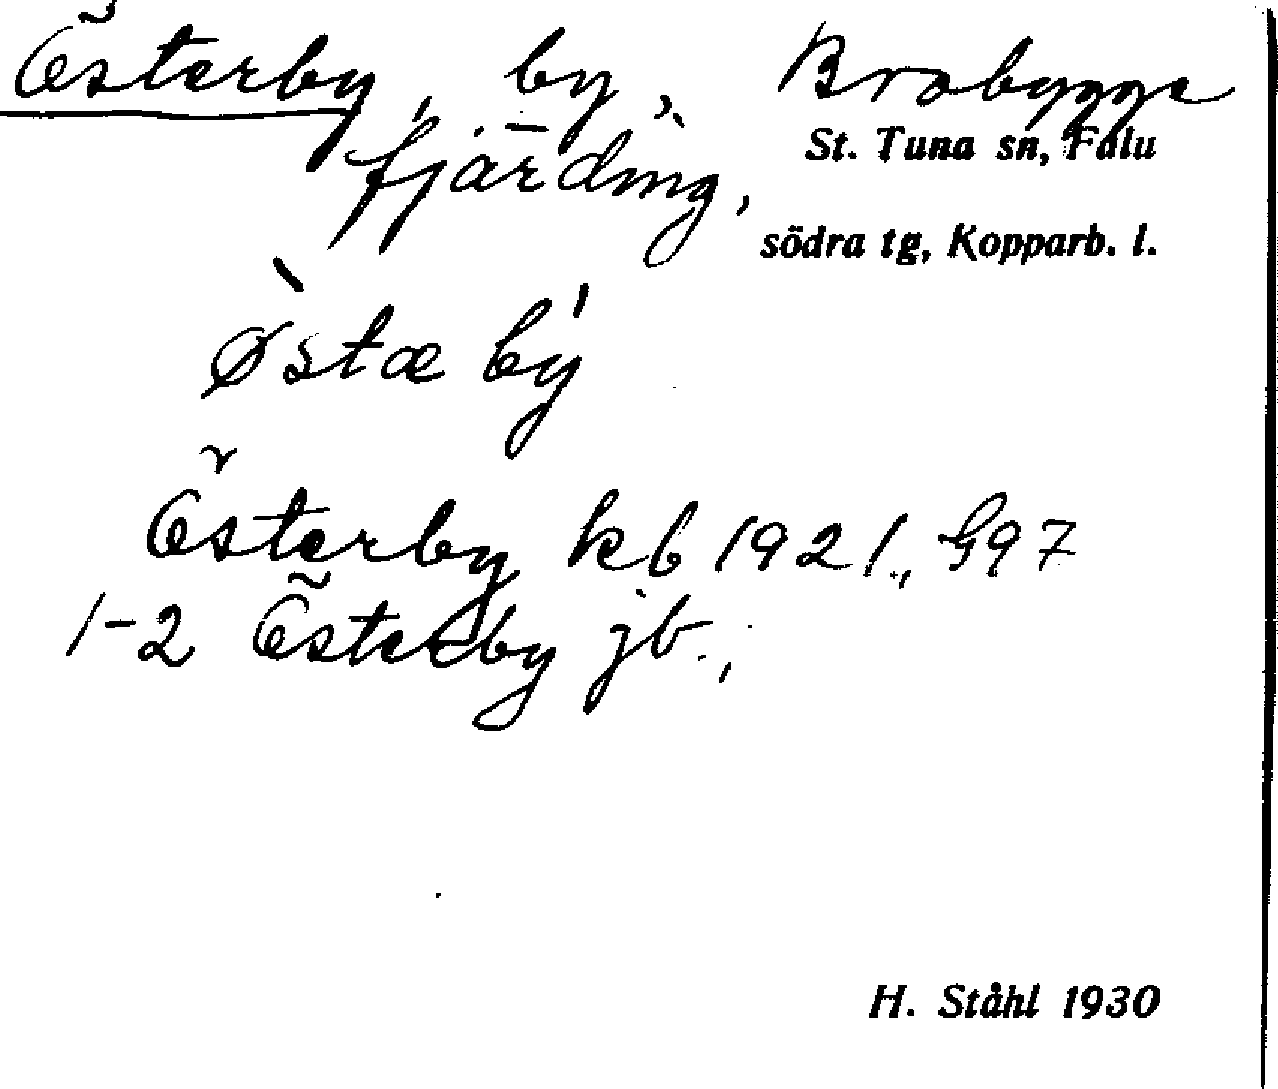 Österby, by, Brobygge
fjärding,
St. Tuna sn, Falu
södra tg, Kopparb. l.
`østæby´
Österby kb 1921, G97
1-2 Österby jb.,
H. Ståhl 1930